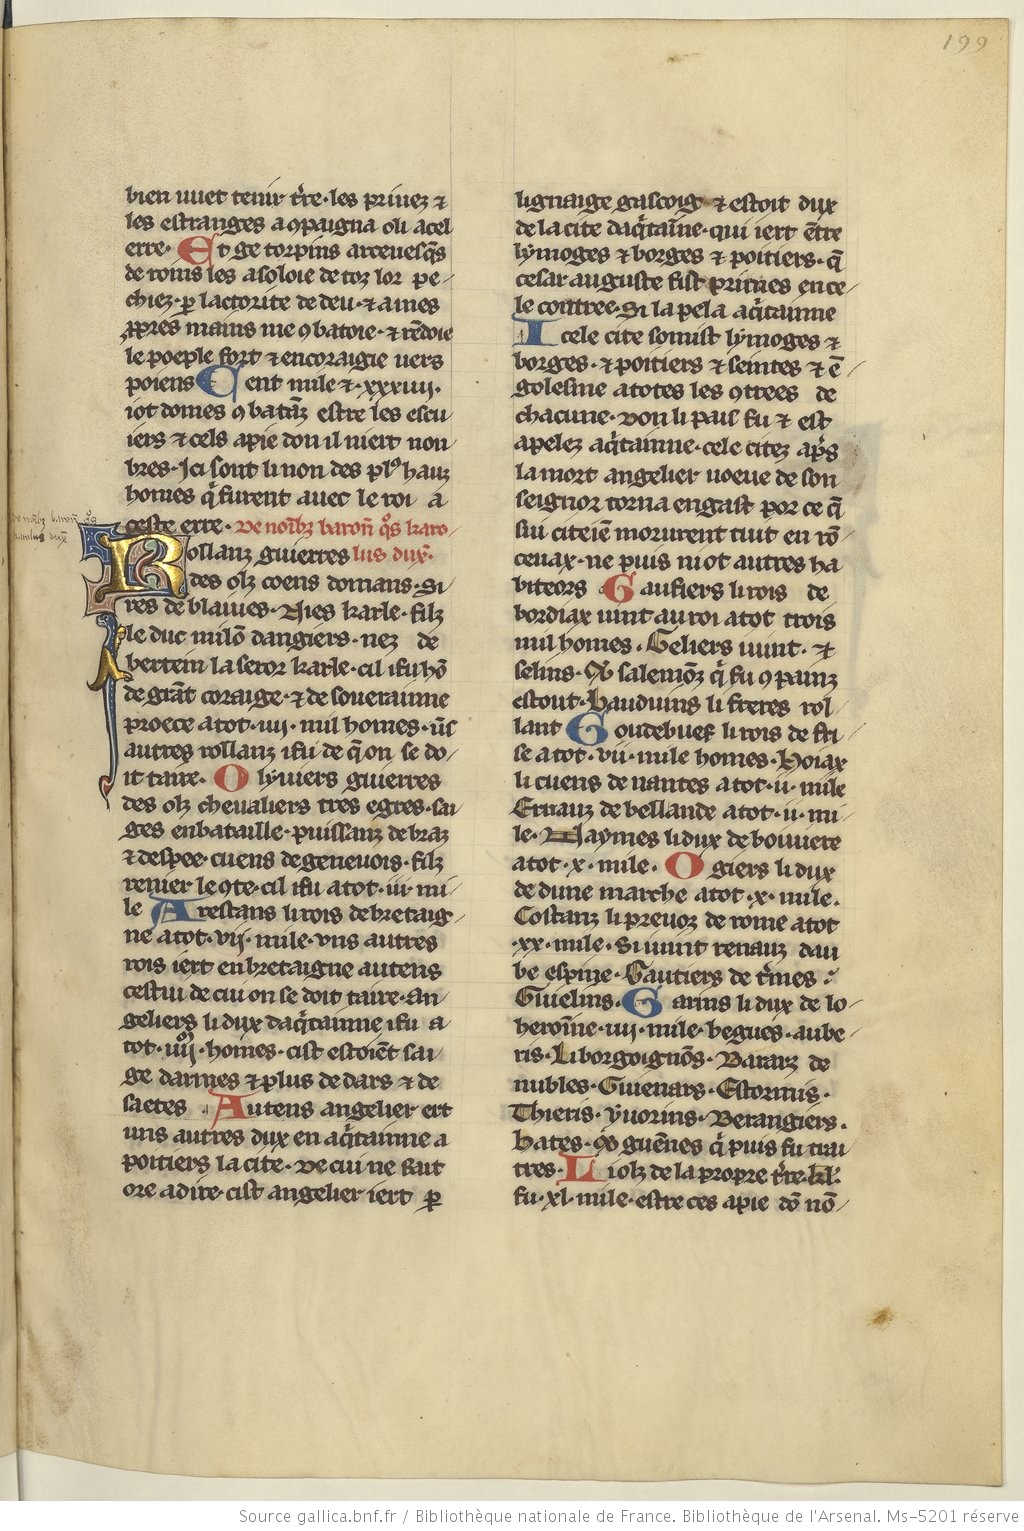 199
bien vuet tenir tr̃e · les priuez ⁊
les estranges a ꝯpaigna o li a cel
erre · Et ge torpins arceuesq̃s
de roins les asoloie de toz lor pe-
chiez · ꝑ lactorite de deu · ⁊ a mes
ꝓpres mains me ꝯbatoie · ⁊ rẽdoie
le poeple fort ⁊ encoraigie uers
poiens Cent mile ⁊ · xxxiiij ·
iot domes ꝯbatãz estre les escu-
iers ⁊ cels a pie don il niert non-
bres · Ici sont li non des pl⁹ hauz
homes q̃ furent auec le roi a
ceste erre · De noĩbz baroñ q̃s karo-
Rollanz guierres lus dux̃ ·
des olz coens domans · Si-
res de blaiues · Nies karle · filz
le duc milõ dangiers · nez de
bertein la seror karle · cil i fu hõ
de grãt coraige · ⁊ de souerainne
proece atot · iiij · mil homes · ũs
autres rollanz i fu de q̃ on se do-
it taire · Olyuiers guierres
des olz cheualiers tres egres · sai-
ges en bataille · puissanz de braz
⁊ despee · cuens de geneuois · filz
renier le ꝯte · cil i fu atot · iij · mi-
le Arestans li rois de bretaig-
ne atot · vij · mile · vns autres
rois iert en bretaigne autens
cestui de cui on se doit taire · An-
geliers li dux daq̃tainne i fu a
tot · iiij · homes · cist estoiẽt sai-
ge darmes ⁊ plus de dars ⁊ de
saetes Autens angelier ert
uns autres dux en aq̃tainne a
poitiers la cite · De cui ne fait
ore a dire · cist angelier iert ꝑ
lignaige gascoig ⁊ estoit dux
de la cite daq̃taĩne · qui iert ẽtre
lymoges ⁊ borges ⁊ poitiers · q̃
cesar auguste fist primes en ce-
le contree · Si lapela aq̃tainne
Icele cite somist lymoges ⁊
borges · ⁊ poitiers ⁊ seintes ⁊ ẽ-
golesme atotes les ꝯtrees de
chacune · Don li pais fu ⁊ est
apelez aq̃tainne · cele citez ap̃s
la mort angelier uoeue de son
seignor torna en gast por ce q̃
sui citeiẽ morurent tuit en rõ-
ceuax · ne puis ni ot autres ha-
biteors Gaifiers li rois de
bordiax uint au roi atot trois
mil homes · Geliers i uint · ⁊
selins · ⁊ salemõz q̃ fu ꝯpainz
estout · Bauduins li freres rol-
lant Gondebuef li rois de fri-
se atot · vij · mile homes · Hoiax
li cuens de nantes atot · ij · mile
Ernauz de bellande atot · ij · mi-
le · Naymes li dux de bouuiere
atot · x · mile · Ogiers li dux
de dune marche atot · x · mile ·
Costanz li preuoz de rome atot
· xx · mile · Si uint renauz dau-
be espine · Gautiers de tr̃mes ·
Guielins · Garins li dux de lo-
heroĩne · iiij · mile · begues · aube-
ris · Li borgoignõs · Bararz de
nubles · Guienars · Estormis ·
Thieris · yuorins · Berangiers ·
hates · guẽnes q̃ puis fu trai-
tres · Li olz de la propre tr̃e · kl̃ ·
fu · xl · mile · estre ces a pie dõ nõ-
Source gallica.bnf.fr / Bibliothèque nationale de France. Bibliothèque de l'Arsenal. Ms-5201 réserve